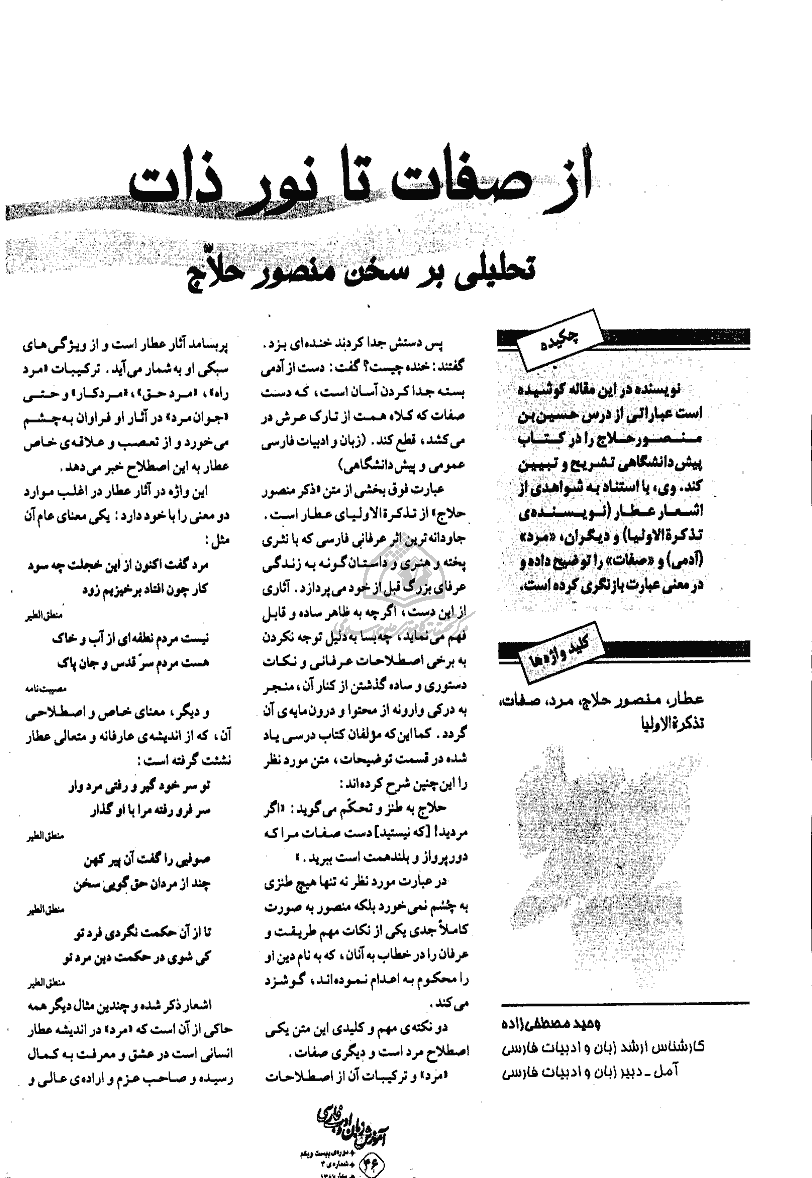 از صفات تا نور ذات
تحلیلی بر سخن منصور حلاّج
چکیده
نویسنده در این مقاله کوشیده
است عباراتی از درس حسین بن
منصور حلاج را در کتاب
پیش‌دانشگاهی تشریح و تبیین
کند. وی، با استناد به شواهدی از
اشعار عطار (نویسنده‌ی
تذکرةالاولیا) و دیگران، «مرد»
(آدمی) و «صفات» را توضیح داده و
در معنی عبارت بازنگری کرده است.
کلید واژه‌ها
عطار، منصور حلاج، مرد، صفات،
تذکرةالاولیا
وحید مصطفی‌زاده
کارشناس ارشد زبان و ادبیات فارسی
آمل ـ دبیر زبان و ادبیات فارسی
پس دستش جدا کردند خنده‌ای بزد.
گفتند: خنده چیست؟ گفت: دست از آدمی
بسته جدا کردن آسان است، که دست
صفات که کلاه همت از تارک عرش در
می‌کشد، قطع کند. (زبان و ادبیات فارسی
عمومی و پیش‌دانشگاهی)
عبارت فوق بخشی از متن «ذکر منصور
حلاج» از تذکرة الاولیای عطار است.
جاودانه‌ترین اثر عرفانی فارسی که با نثری
پخته و هنری و داستان‌گونه به زندگی
عرفای بزرگ قبل از خود می‌پردازد. آثاری
از این دست، اگرچه به ظاهر ساده و قابل
فهم می‌نماید، چه‌بسا به‌دلیل توجه نکردن
به برخی اصطلاحات عرفانی و نکات
دستوری و ساده گذشتن از کنار آن، منجر
به درکی وارونه از محتوا و درون‌مایه‌ی آن
گردد. کما این‌که مؤلفان کتاب درسی یاد
شده در قسمت توضیحات، متن مورد نظر
را این‌چنین شرح کرده‌اند:
حلاج به طنز و تحکّم می‌گوید: «اگر
مردید! [که نیستید] دست صفات مرا که
دورپرواز و بلندهمت است ببرید.»
در عبارت مورد نظر نه تنها هیچ طنزی
به چشم نمی‌خورد بلکه منصور به صورت
کاملاً جدی یکی از نکات مهم طریقت و
عرفان را در خطاب به آنان، که به نام دین او
را محکوم به اعدام نموده‌اند، گوشزد
می‌کند.
دو نکته‌ی مهم و کلیدی این متن یکی
اصطلاح مرد است و دیگری صفات.
«مرد» و ترکیبات آن از اصطلاحات
پربسامد آثار عطار است و از ویژگی‌های
سبکی او به شمار می‌آید. ترکیبات «مرد
راه»، «مرد حق»، «مرد کار» و حتی
«جوان مرد» در آثار او فراوان به‌چشم
می‌خورد و از تعصب و علاقه‌ی خاص
عطار به این اصطلاح خبر می‌دهد.
این واژه در آثار عطار در اغلب موارد
دو معنی را با خود دارد: یکی معنای عام آن
مثل:
مرد گفت اکنون از این خجلت چه سود
کار چون افتاد برخیزیم زود
منطق‌الطیر
نیست مردم نطفه‌ای از آب و خاک
هست مردم سرّ قدس و جان پاک
مصیبت‌نامه
و دیگر، معنای خاص و اصطلاحی
آن، که از اندیشه‌ی عارفانه و متعالی عطار
نشئت گرفته است:
تو سر خود گیر و رفتی مرد وار
سر فرو رفته مرا با او گذار
منطق‌الطیر
صوفیی را گفت آن پیر کهن
چند از مردان حق گویی سخن
منطق‌الطیر
تا از آن حکمت نگردی فرد تو
کی شوی در حکمت دین مرد تو
منطق‌الطیر
اشعار ذکر شده و چندین مثال دیگر همه
حاکی از آن است که «مرد» در اندیشه عطار
انسانی است در عشق و معرفت به کمال
رسیده و صاحب عزم و اراده‌ی عالی و
آموزش زبان و ادب فارسی
دوره‌ی بیست و یکم
شماره‌ی ۳
۴۶